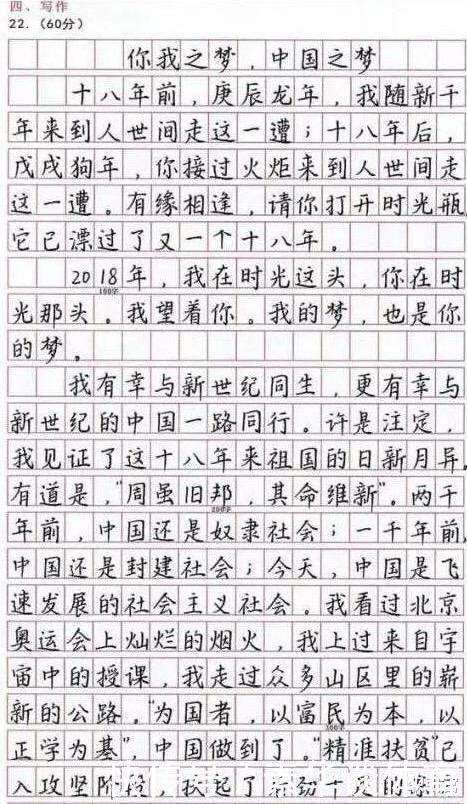 四、写作
22.（60分）
你我之梦，中国之梦
十八年前，庚辰龙年，我随新千
年来到人世间走这一遭；十八年后，
戊戌狗年，你接过火炬来到人世间走
这一遭。有缘相逢，请你打开时光瓶
它已漂过了又一个十八年。
2018年，我在时光这头，你在时
100字
光那头。我望着你。我的梦，也是你
的梦。
我有幸与新世纪同生，更有幸与
新世纪的中国一路同行。许是注定，
我见证了这十八年来祖国的日新月异，
有道是，“周虽旧邦，其命维新”。两千
200字
年前，中国还是奴隶社会；一千年前，
中国还是封建社会；今天，中国是飞
速发展的社会主义社会。我看过北京
奥运会上灿烂的烟火，我上过来自宇
宙中的授课，我走过众多山区里的崭
新的公路。“为国者，以富民为本，以
300字
正学为基”，中国做到了。“精准扶贫”已
入攻坚阶